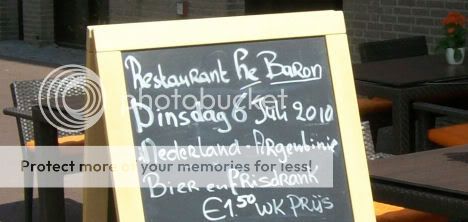 Restaurant The Baron
photobucket
Dinsdag 6 Juli 2010
Nederland - Argentinie
Protect more of your memories for less!
Bier en Frisdrank
€1.50 WK Prijs